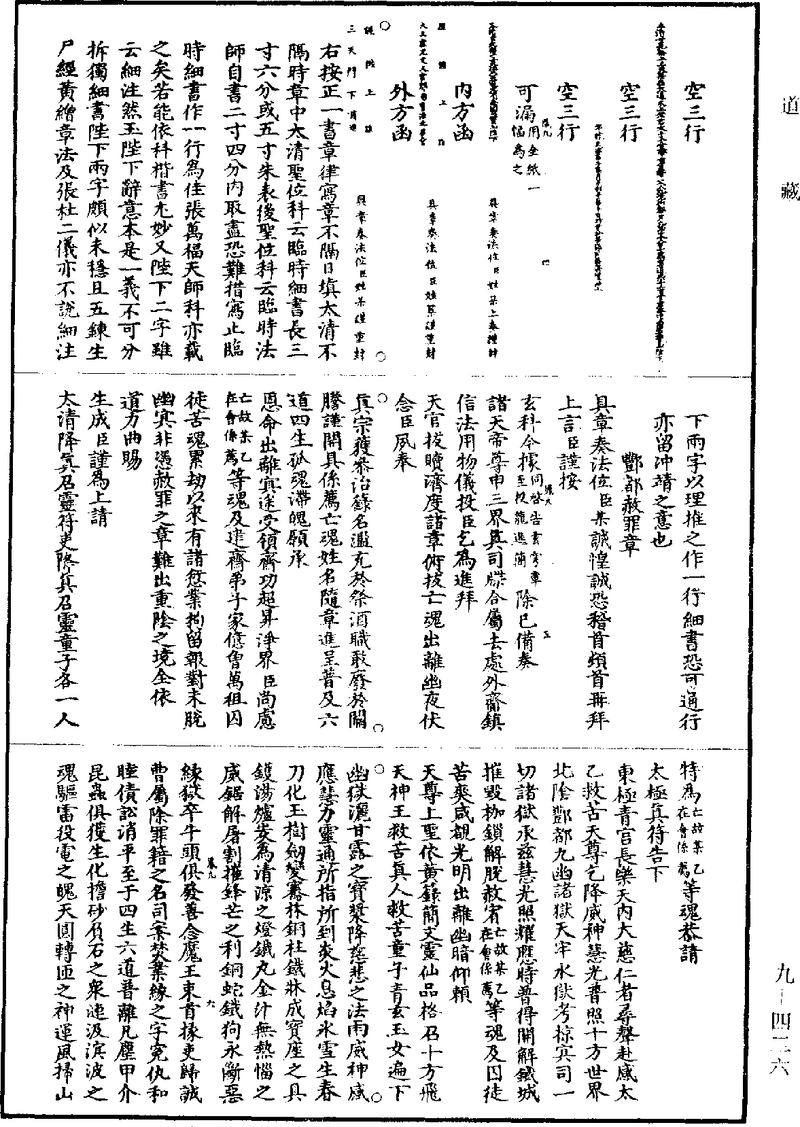 道藏
空三行
空三行
空三行
可漏用全紙一幅為之
具章奏法位臣姓某上奏謹封
內方函
具章奏法位臣姓某謹重封
外方函
三天門下
具章奏法位臣姓某謹重封
右按正一書章律寫章不隔日填太清不
隔時章中太清聖位科云臨時細書長三
寸六分或五寸朱表後聖位科云臨時法
師自書二寸四分內取盡恐難措寫止臨
時細書作一行為佳張萬福天師科亦載
之矣若能依科楷書尤妙又陛下二字雖
云細注然玉陛下辭意本是一義不可分
拆獨細書陛下兩字頗似未穩且五鍊生
尸經黃繒章法及張杜二儀亦不說細注
下兩字以理推之作一行細書恐可通行
亦留沖靖之意也
酆都赦罪章
具章奏法位臣某誠惶誠恐稽首頓首再拜
上言臣謹按
玄科今據同啟告素寄章至投龍進簡除已備奏
諸天帝尊申三界真司牒合屬去處外齋鎮
信法用物儀投臣乞為進拜
天官拔贖濟度諸章術拔亡魂出離幽夜伏
念臣夙奉
真宗獲恭治錄名濫充於祭酒職敢廢於關
騰謹開具係薦亡魂姓名隨章進呈普及六
道四生孤魂滯魄願承
恩命出離冥途受領齋功超昇淨界臣尚慮
亡故某乙在會係薦等魂及建齋弟子家億曾萬祖囚
徒苦魂累劫以來有諸愆業拘留報對未脫
幽冥非憑赦罪之章難出重陰之境全依
道力曲賜
生成臣謹為上請
太清降真召靈符吏降真召靈童子各一人
特為亡故某乙在會係薦等魂恭請
太極真符告下
東極青宮長樂天內大慈仁者尋聲赴感太
乙救苦天尊乞降威神慧光普照十方世界
北陰酆都九幽諸獄天牢水獄考掠冥司一
切諸獄永茲慧光照耀應時普得開解鐵城
摧毀枷鎖解脫赦宥亡故某乙在會係薦等魂及囚徒
苦爽咸覩光明出離幽暗仰賴
天尊上聖依黃籙簡文靈仙品格召十方飛
天神王救苦真人救苦童子青玄玉女遍下
幽獄灑甘露之寶漿降慈悲之法雨威神感
應慧力靈通所指所到炎火息焰氷雪生春
刀化玉樹劒變騫林銅柱鐵牀成寶座之具
鑊湯爐炭為清涼之燈鐵丸金汁無熱惱之
威鋸解屠割摧鋒芒之利銅蛇鐵狗永斷惡
緣獄卒牛頭俱發善念魔王束首掾吏歸誠
曹屬除罪籍之名司案焚業緣之字冤仇和
睦債訟消平至于四生六道普離凡塵甲介
昆蟲俱獲生化擔砂負石之衆漣汲溟波之
魂驅雷役電之魄天圓轉匝之神運風掃山
九-四二六